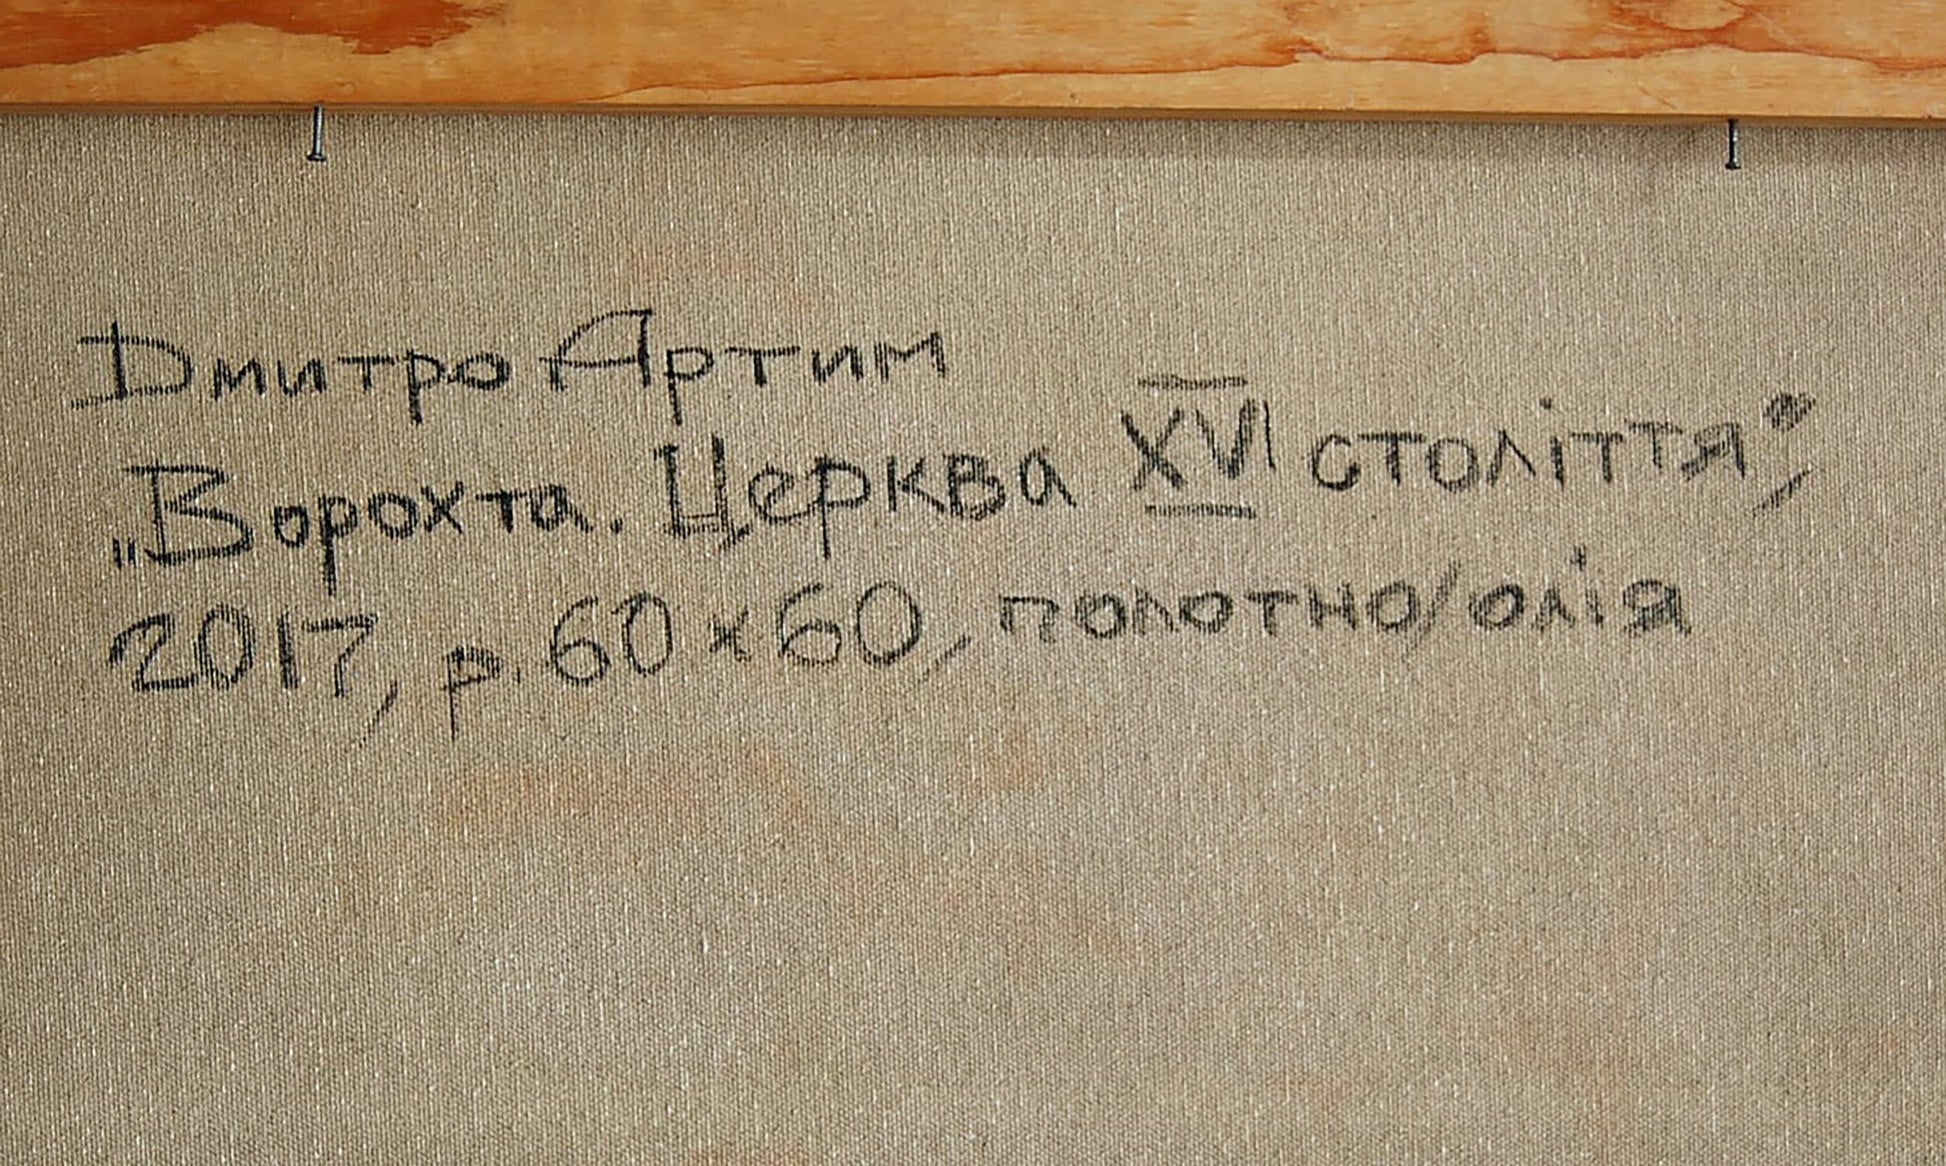 Дмитро Артим
„Ворохта. Церква XVI століття”,
2017, р. 60х60, полотно/олія